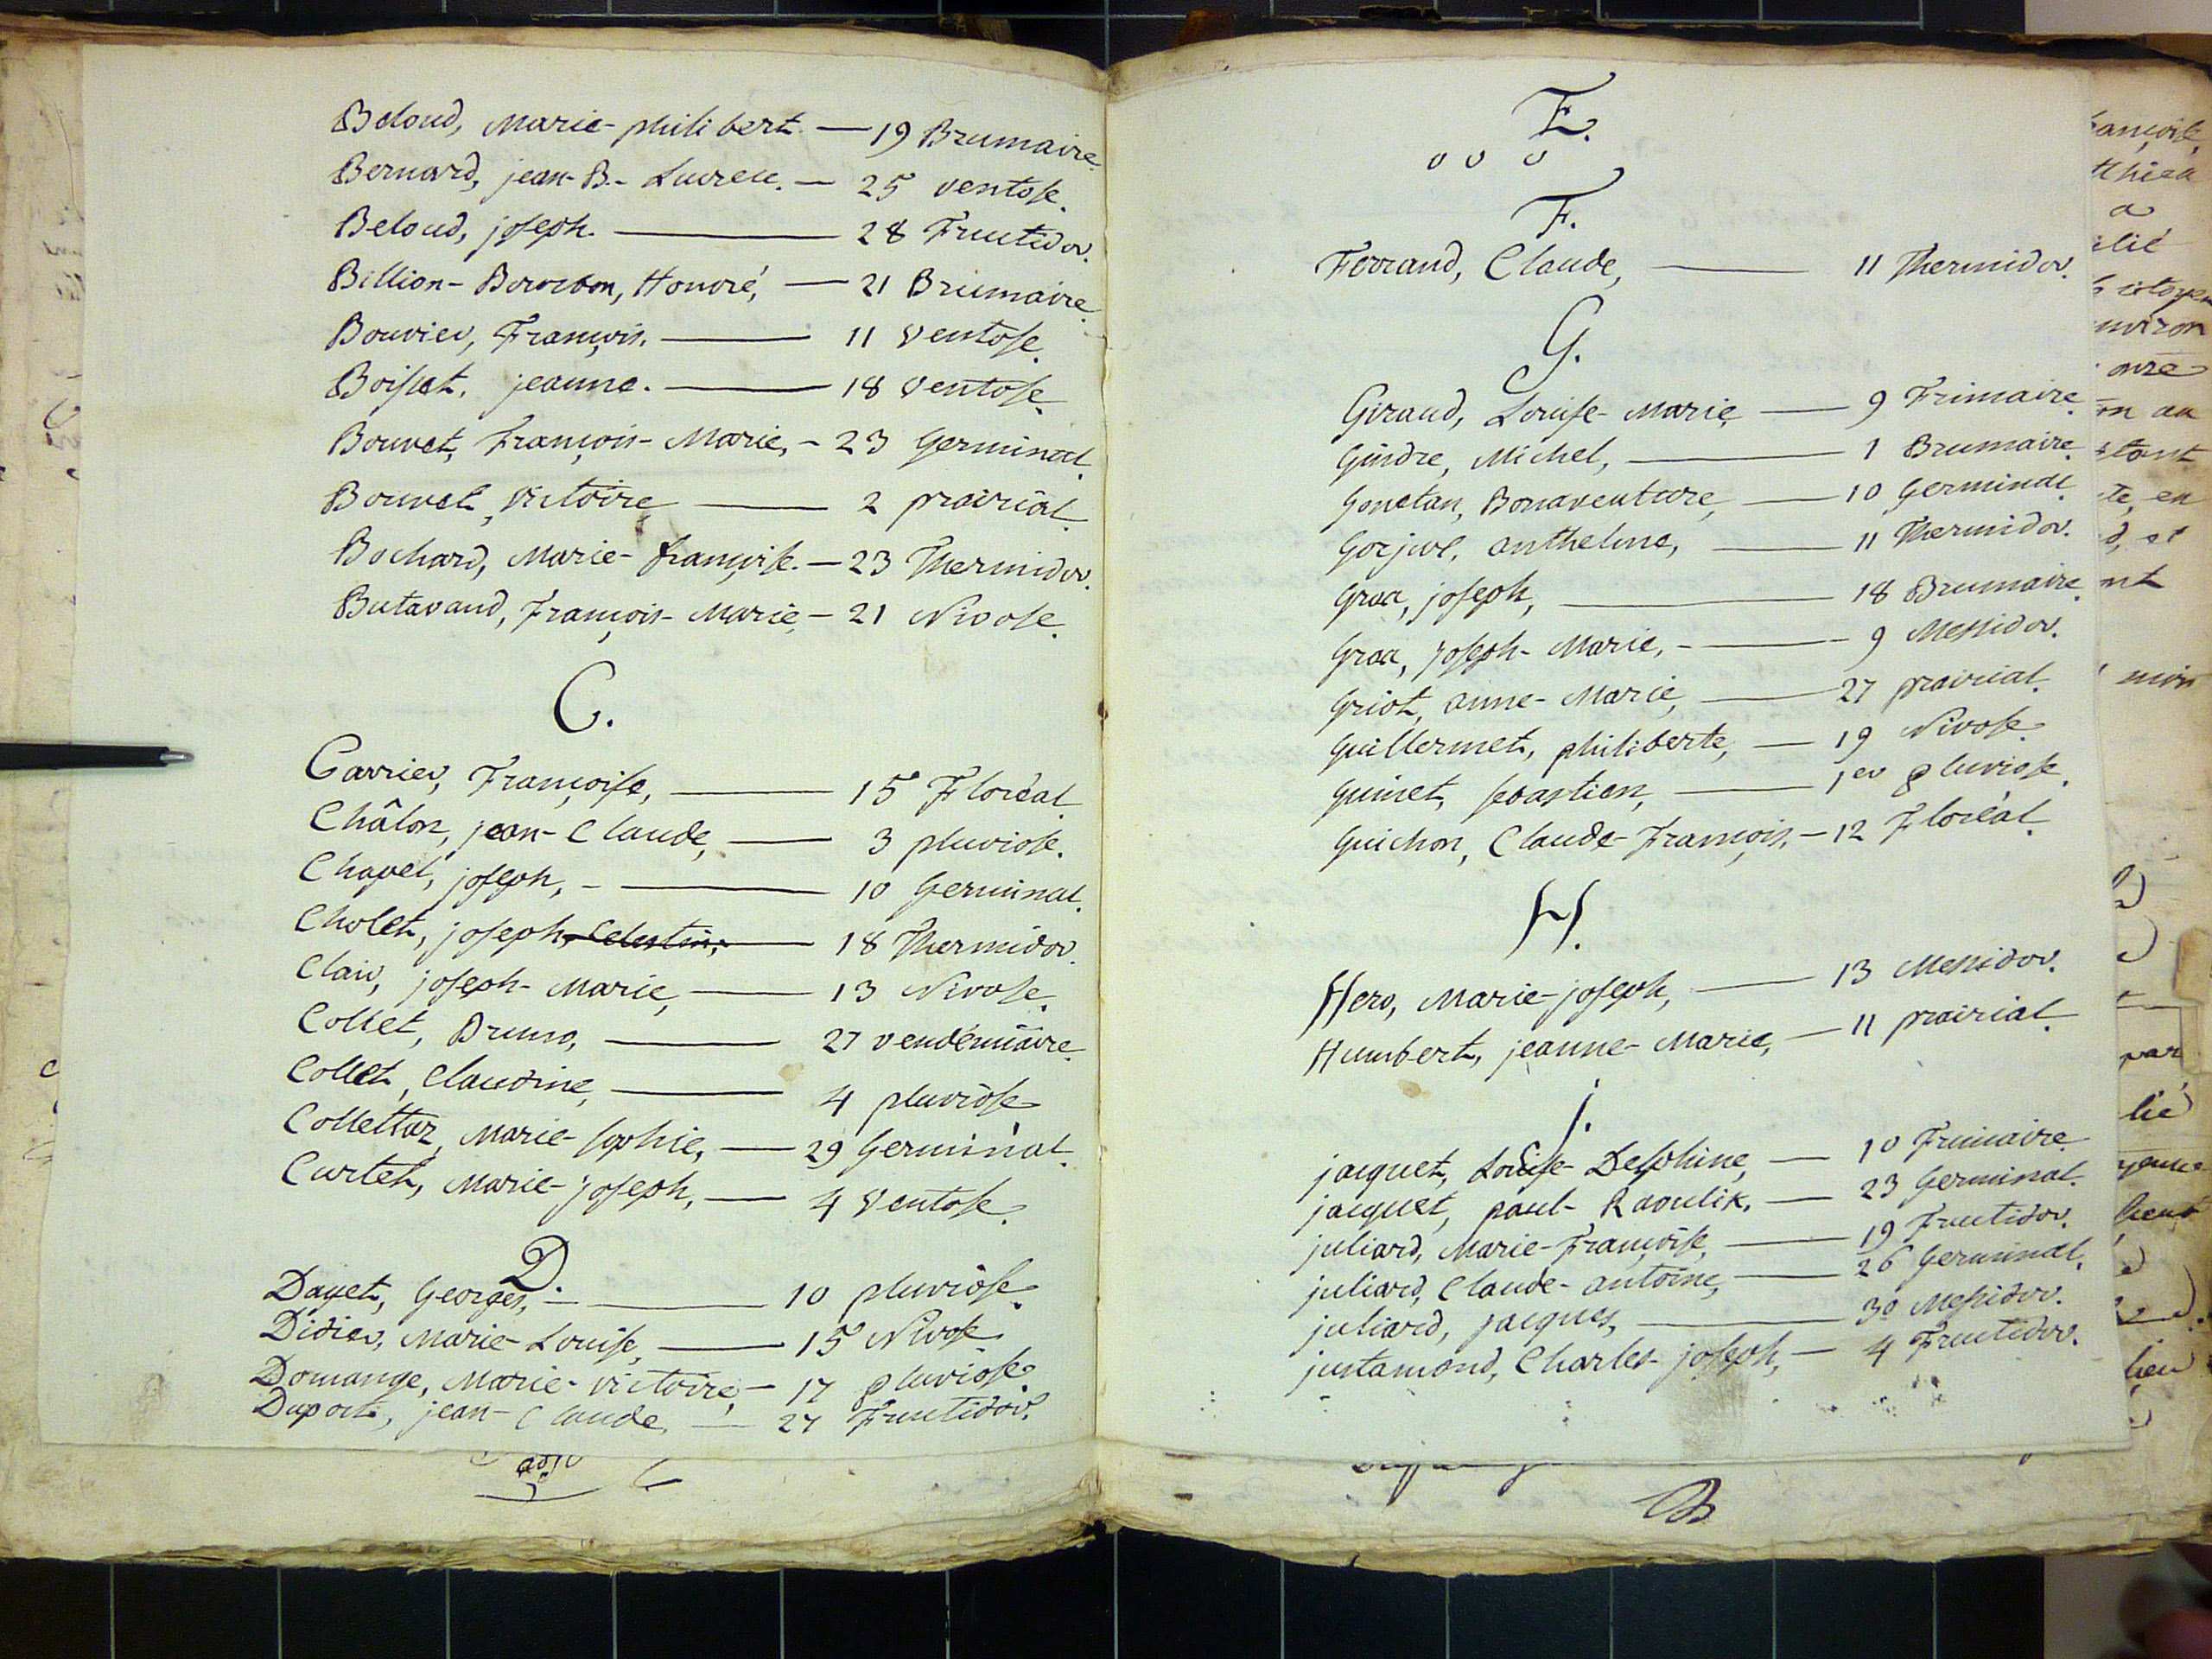 Beloud, Marie-philibert. — 19 Brumaire.
Bernard, jean-B.- Lucrece. — 25 ventose.
Beloud, joseph. — 28 Fructidor.
Billion-Bourbon, Honoré, — 21 Brumaire.
Bouvier, François. — 11 Ventose.
Boisset, jeanne. — 18 Ventose.
Bouvet, François-Marie, — 23 Germinal.
Bouvet, victoire — 2 prairial.
Bochard, Marie-françoise. — 23 Thermidor.
Butavand, François-Marie, — 21 Nivose.
C.
Carrier, Françoise, — 15 Floréal.
Châlon, jean-Claude, — 3 pluviose.
Chapel, joseph, — 10 Germinal.
Cholet, joseph, Celestin, — 18 Thermidor.
Clair, joseph-Marie, — 13 Nivose.
Collet, Bruno, — 27 vendémiaire.
Collet, Claudine, — 4 pluviôse.
Collettaz, Marie-sophie, — 29 Germinal.
Curtet, Marie-joseph, — 4 Ventose.
D.
Dayet, Georges, — 10 pluviôse.
Didier, Marie-Louise, — 15 Nivose.
Domange, Marie-victoire, — 17 pluviose.
Duport, jean-Claude, — 27 Fructidor.
E.
o o o
F.
Ferrand, Claude, — 11 Thermidor.
G.
Giraud, Louise-Marie, — 9 Frimaire.
Gindre, Michel, — 1 Brumaire.
Gonetan, Bonaventure, — 10 Germinal.
Gorjux, anthelme, — 11 Thermidor.
Graa, joseph, — 18 Brumaire.
Graa, joseph-Marie, — 9 Messidor.
Griot, anne-Marie, — 27 prairial.
Guillermet, philiberte, — 19 Nivose.
Guinet, sebastien, — 1er pluviose.
Guichon, Claude-François, — 12 Floréal.
H.
Hero, Marie-joseph, — 13 Messidor.
Humbert, jeanne-Marie, — 11 prairial.
j.
jacquet, Louise-Delphine, — 10 Frimaire.
jacquet, paul-Raoulik, — 23 Germinal.
juliard, Marie-Françoise, — 19 Fructidor.
juliard, Claude-antoine, — 26 Germinal.
juliard, jacques, — 30 Messidor.
justamond, Charles-joseph, — 4 Fructidor.